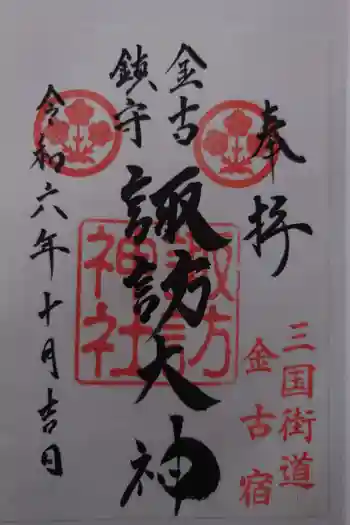 奉拝
金古
鎮守
諏訪大神
令和六年十月吉日
諏訪
神社
三国街道
金古宿